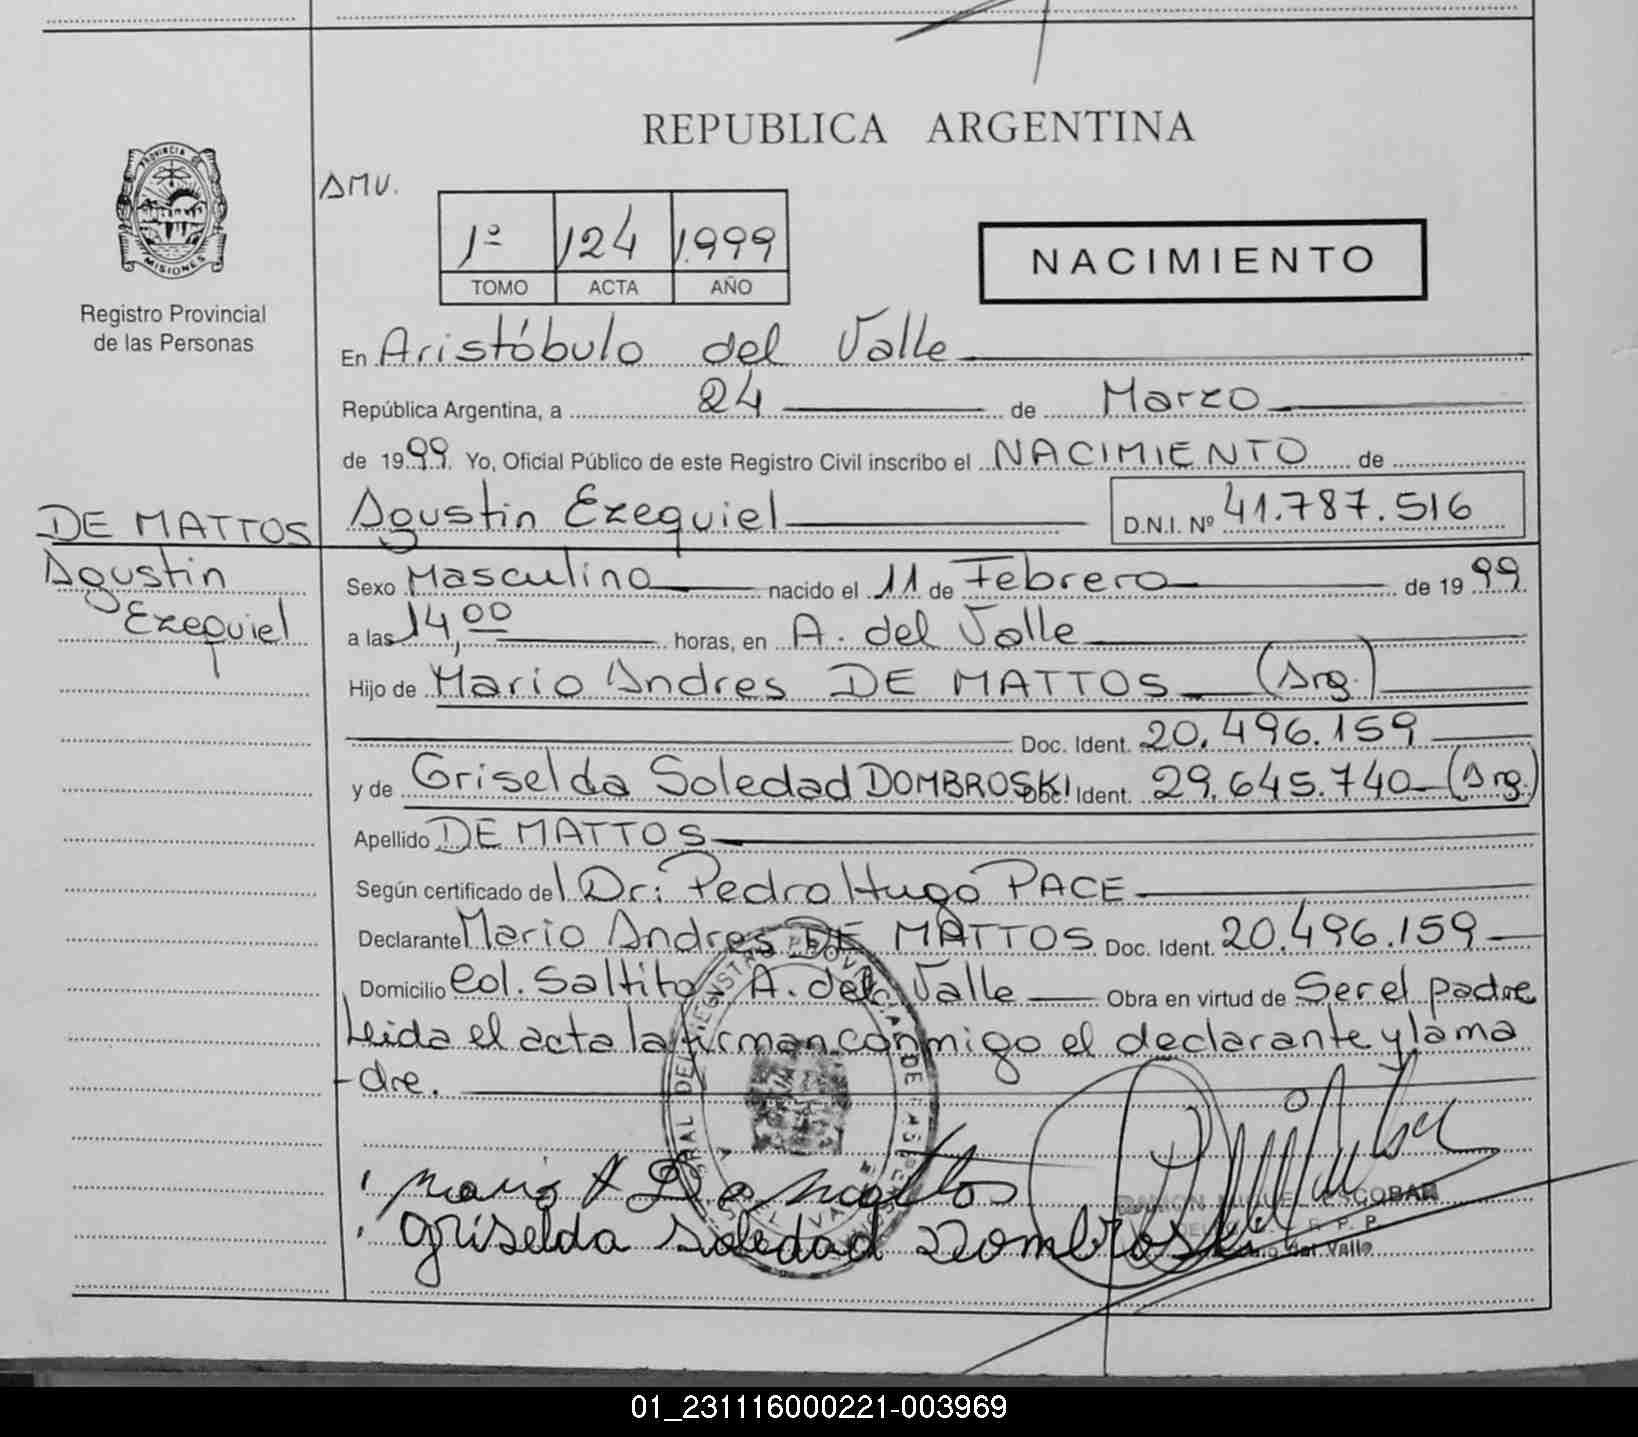 REPUBLICA ARGENTINA
PROVINCIA DE
MISIONES
Registro Provincial
de las Personas
AMV.
1º 124 1.999
TOMO ACTA AÑO
NACIMIENTO
En Aristóbulo del Valle
República Argentina, a 24 de Marzo
de 1999. Yo, Oficial Público de este Registro Civil inscribo el NACIMIENTO de
DE MATTOS
Agustin
Ezequiel
Agustin Ezequiel D.N.I. Nº 41.787.516
Sexo Masculino nacido el 11 de Febrero de 1999
a las 14,00 horas, en A. del Valle
Hijo de Mario Andres DE MATTOS (Arg.)
Doc. Ident. 20.496.159
y de Griselda Soledad DOMBROSKI Doc. Ident. 29.645.740 (Arg.)
Apellido DE MATTOS
Según certificado del Dr: Pedro Hugo PACE
Declarante Mario Andres DE MATTOS Doc. Ident. 20.496.159
Domicilio Col. Saltito A. del Valle Obra en virtud de Ser el padre
Leida el acta la firman conmigo el declarante y la ma
-dre.
Mario A De Mattos
RAMON MIGUEL ESCOBAR
Griselda Soledad Dombroski
01_231116000221-003969